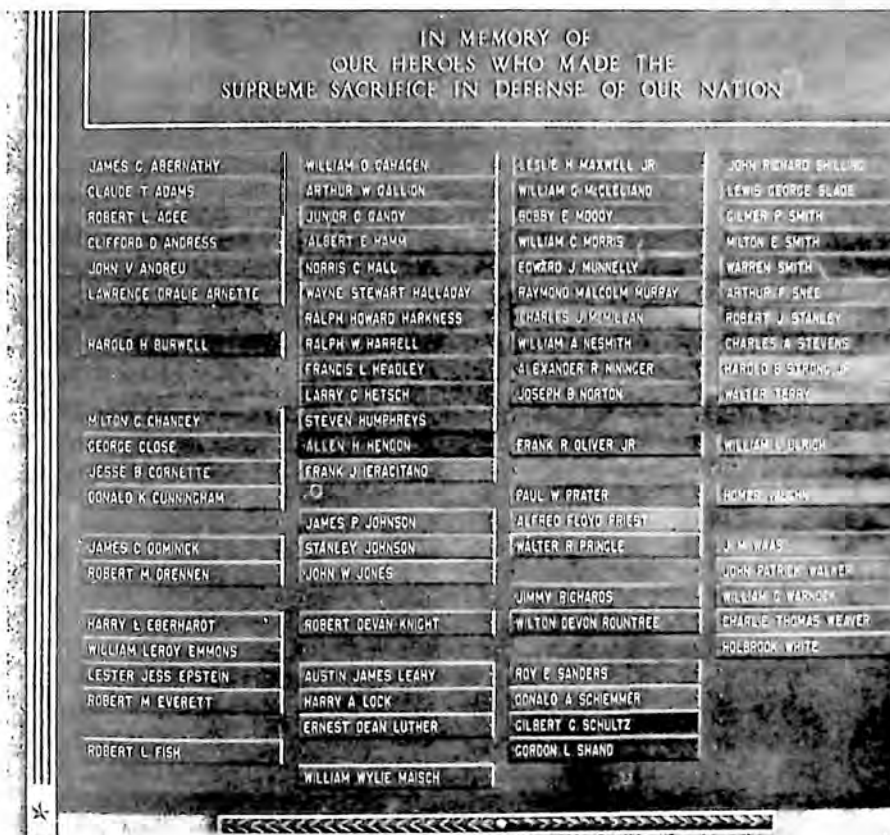 IN MEMORY OF
OUR HEROES WHO MADE THE
SUPREME SACRIFICE IN DEFENSE OF OUR NATION
JAMES C. ABERNATHY
CLAUDE T ADAMS
ROBERT L AGEE
CLIFFORD D ANDRESS
JOHN V ANDREU
LAWRENCE ORALIE ARNETTE
HAROLD H BURWELL
MILTON C. CHANCEY
GEORGE CLOSE
JESSE B CORNETTE
DONALD K CUNNINGHAM
JAMES C DOMINICK
ROBERT M. DRENNEN
HARRY L EBERHARDT
WILLIAM LEROY EMMONS
LESTER JESS EPSTEIN
ROBERT M EVERETT
ROBERT L FISH
WILLIAM O GAHAGEN
ARTHUR W GALLION
JUNIOR C GANDY
ALBERT E HAMM
NORRIS C HALL
WAYNE STEWART HALLADAY
RALPH HOWARD HARKNESS
RALPH W HARRELL
FRANCIS L HEADLEY
LARRY C HETSCH
STEVEN HUMPHREYS
ALLEN H HENDON
FRANK J IERACITANO
JAMES P JOHNSON
STANLEY JOHNSON
JOHN W JONES
ROBERT DEVAN KNIGHT
AUSTIN JAMES LEAHY
HARRY A LOCK
ERNEST DEAN LUTHER
WILLIAM WYLIE MAISCH
LESLIE H MAXWELL JR
WILLIAM G McCLELLAND
BOBBY E MOODY
WILLIAM C MORRIS
EDWARD J MUNNELLY
RAYMOND MALCOLM MURRAY
CHARLES J McMILLAN
WILLIAM A NESMITH
ALEXANDER R NININGER
JOSEPH B NORTON
FRANK R OLIVER JR
PAUL W PRATER
ALFRED FLOYD PRIEST
WALTER R PRINGLE
JIMMY RICHARDS
WILTON DEVON ROUNTREE
ROY E SANDERS
DONALD A SCHIEMMER
GILBERT G. SCHULTZ
GORDON L SHAND
JOHN RICHARD SHILLING
LEWIS GEORGE SLADE
GILMER P SMITH
MILTON E SMITH
WARREN SMITH
ARTHUR F SNEE
ROBERT J STANLEY
CHARLES A STEVENS
HAROLD B STRONG JR
WALTER TERRY
WILLIAM L ULRICH
HOMER VAUGHN
J M WAAS
JOHN PATRICK WALKER
WILLIAM G WARNOCK
CHARLIE THOMAS WEAVER
HOLBROOK WHITE